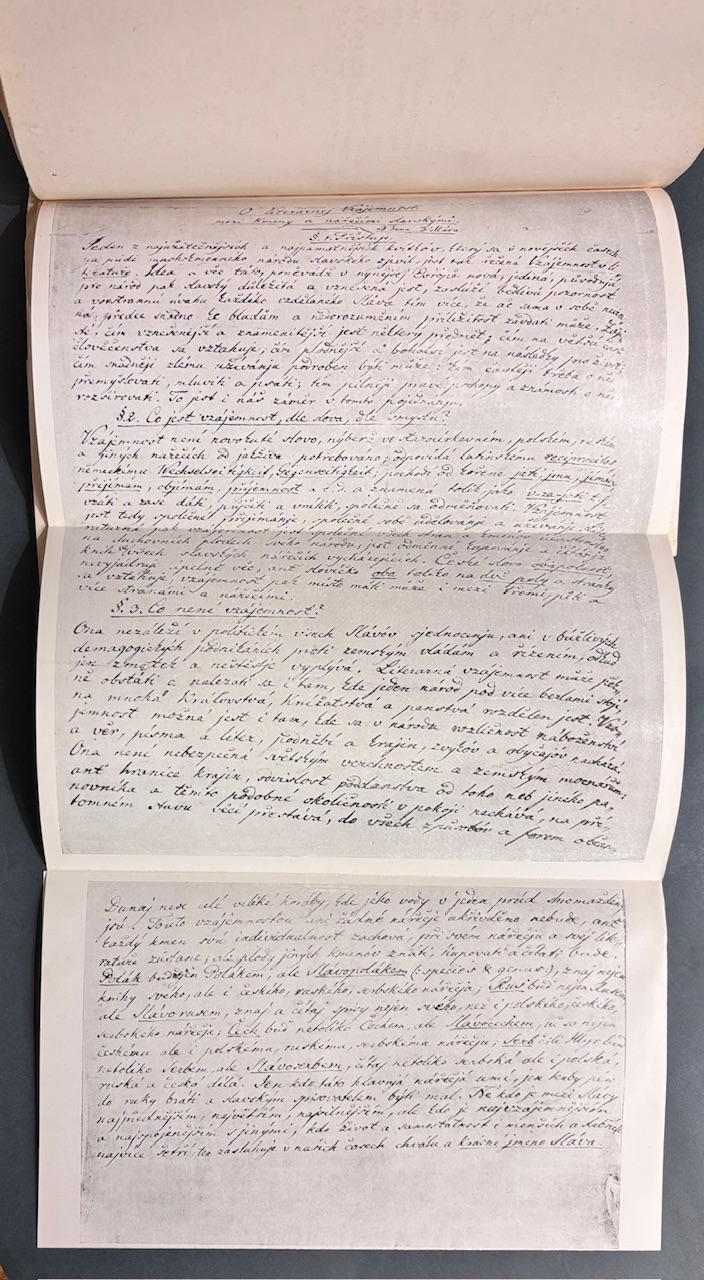 O literarnej Vzájemnosti
mezi kmeny a nářečími slavskými.
Od Jana Kollára
§. 1. Přístup.
Jeden z najužitečnějších a najpamátnějších kvítkův, který sa v novějších časech
na půdě mnohokmenného národu Slavského zjevil, jest tak řečená Vzájemnost v li-
teratuře. Idea a věc tato, poněvádž v nynější Evropě nová, jediná, původnja
pre národ pak slavský důležitá a vznešená jest, zasluží bedlivú pozornost
a všestrannu úvahu každého vzdělaného Sláva tím více, že ač sama v sobě nevin-
ná, předce snadno ke bludům a nedorozuměním příležitost zavdati může. Zaji-
sté, čím vznešenější a znamenitější jest některý předmět; čím na větší část
člověčenstva sa vztahuje; čím plodnější a bohatší jest na následky pro život:
čím snadněji zlému užívanju podroben býti může: tím častěji třeba o něm
přemyšlovati, mluviti a psáti; tím pilněji pravé pochopy a známosti o něm
rozšiřovati. To jest i náš záměr v tomto pojednanju.
§. 2. Co jest vzájemnost, dle slova, dle smyslu?
Vzájemnost není novokuté slovo, nýbrž ve staročirkevním, polském, ruském
a jiných nářečích od jakživa potrebováno; odpovídá latinskému reciprocitas
německému Wechselseitigkeit, Gegenseitigkeit; pochodí od kořene jeti, jmu, jímám
přejímám, objímám, příjemnost a t. d. a znamená tolik jako, vza-jeti t. j.
vzáti a zase dáti, půjčiti a vrátiti, společně sa odměňovati. Vzájemnost
jest tedy společné přejímanje, společné sobě udělovanje a užívanje;
raturná pak vzájemnost jest společné všech stran a kmenův účastenstvo
na duchovních plodech svého národu, jest odměnné kupovanje a čítanje
knih všech slavských nářečích vycházejících. České slovo obapolnost,
nevyjadruje úpilně věc, ant slovíčko oba toliko na dvě poly a stránky
sa vztahuje, vzájemnost pak místo máti může i mezi třemi, pěti a
více stranami a nářečími.
§. 3. Co není vzájemnost?
Ona nezáleží v politickém všech Slávův sjednocenju, ani v buřlivých
demagogických podnikáních proti zemským vládám a řízením, odkud
jen zmätek a neštěstje vyplývá. Literarná vzájemnost může pěk-
ně obstáti a nalézati sa i tam, kde jeden národ pod více berlami stojí,
na mnohá království, knížatstva a panstvá rozdělen jest. Vzá-
jemnost možná jest i tam, kde sa v národu rozličnost náboženství
a věr, pisma a liter, podnebí a krajin, zvykův a obyčajův nachází.
Ona není nebezpečná světským verchnostem a zemským mocnářům:
ant hranice krajin, souvislost poddanstva od toho neb jiného pa-
novníka a těmto podobné okoličnosti v pokoji nechává, na pří-
tomném stavu věcí přestává, do všech způsobův a forem obče-
Dunaj nese celé veliké koráby, kde jeho vody v jeden prúd shromážděny
jsú. Touto vzájemnostou ani žádné nářečje ukřivděno nebude, ant
každý kmen svú individualnost zachová, při svém nářečju a svej lite-
ratuře zůstane; ale plody jiných kmenův znáti, kupovati a čítati bude.
Polák budiž nejen Polákem, ale Slávopolákem (:species & genus:), znaj nejen
knihy svého, ale i českého, ruského, serbského nářečja; Rus buď nejen Rusem
ale Slávorusem, znaj a čítaj spisy nejen svého, než i polského, českého,
serbského nářečja; Čech buď netoliko Čechem, ale Slávočechem, uč sa nejen
českému ale i polskému, ruskému, serbskému nářečju; Serb čili Illyr buď
netoliko Serbem, ale Slávoserbem, čítaj netoliko serbská ale i polská,
ruská a česká díla. Jen kdo táto hlavnjá nářečjá umí, jen ten by péro
do ruky bráti a slavským spisovatelem býti mal. Ne kdo je mezi Slávy
najpřednějším, největším, najsilnějším, ale kdo je najvzájemnějším
a najspojenějším s jinými, kdo život a samostatnost i menších a slabších
najvíce šetří: ten zasluhuje v našich časech chválu a krásné jméno Sláva.